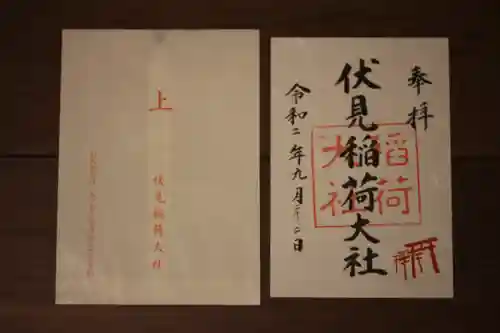 上
伏見稲荷大社
奉拝
伏見稲荷大社
稲荷
大社
令和二年九月二十二日